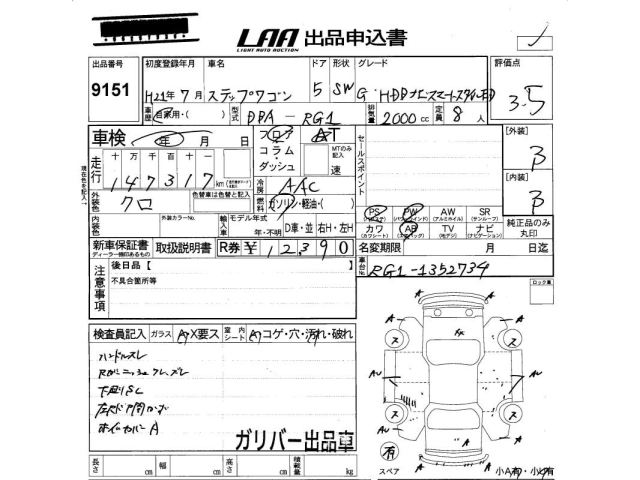 LAA 出品申込書
LIGHT AUTO AUCTION
出品番号 9151
初度登録年月 H21年7月
車名 ステップワゴン
ドア 5
形状 SW
グレード G・HDD
評価点 3.5
車歴 自家用・( )
型式 DBA-RG1
排気量 2000 cc
定員 8人
車検 年 月 日
フロア コラム・ダッシュ
AT
MTのみ記入 速
セールスポイント
[外装] B
[内装] B
走行 十万千百十一
147317 km
冷房 AAC
外装色 クロ
色替車は色替と記入
燃料 ガソリン・軽油・( )
PS (パワステ)
PW (パワーウインド)
AW (アルミホイル)
SR (サンルーフ)
内装色
外装カラーNo.
輸入車 モデル年式 年・不明
D車・並 右H・左H
カワ (カワシート)
AB (エアバッグ)
TV (地デジ)
ナビ (ナビゲーション)
純正品のみ丸印
新車保証書
ディーラー捺印あるもの
取扱説明書
R券 ¥ 12390
名変期限 月 日迄
注意事項
後日品【
不具合箇所等
車台No. RG1-1352734
ロック車
検査員記入
ガラス A・X要ス
室内シート コゲ・穴・汚れ・破れ
ハンドルスレ
ホイルカバーA
ガリバー出品車
長さ cm 幅 cm 高さ cm 積載量 kg
有 スペア
小A有・小X有